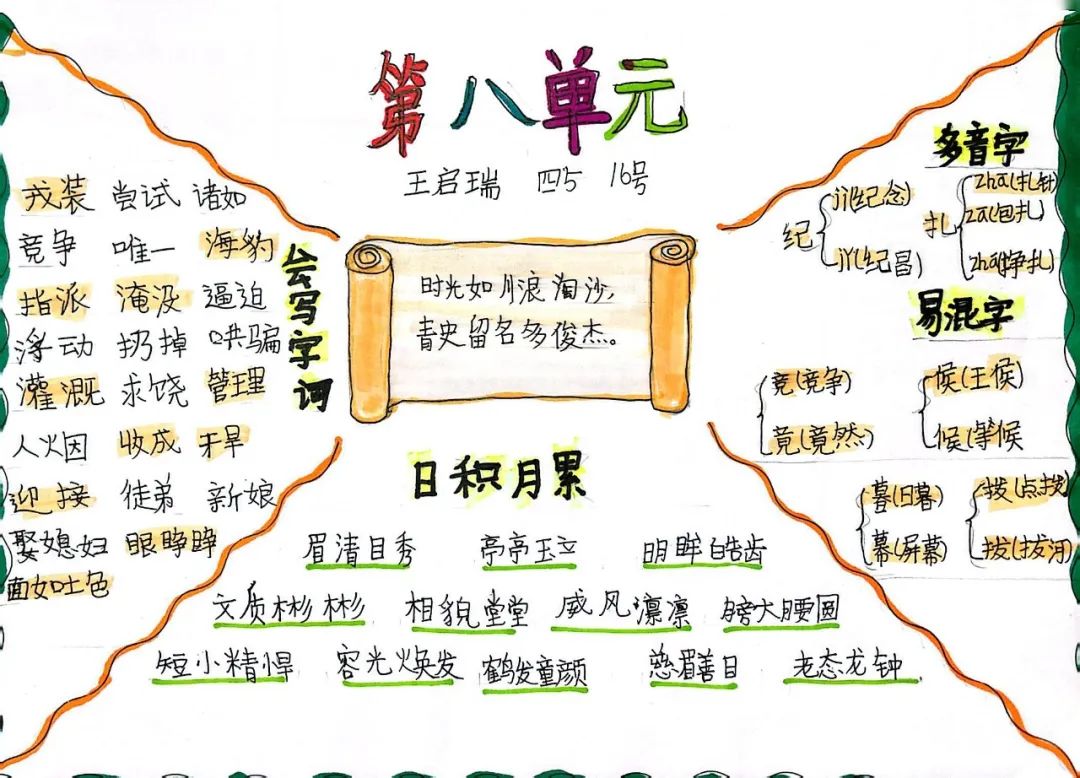 第八单元
王启瑞 四5 16号
戎装 尝试 诸如
竞争 唯一 海豹
指派 淹没 逼迫
浮动 扔掉 哄骗
灌溉 求饶 管理
人火因 收成 干旱
迎接 徒弟 新娘
娶媳妇 眼睁睁
面如土色
会写字词
时光如川浪淘沙,
青史留名多俊杰。
多音字
纪 jì(纪念)
jǐ(纪昌)
扎 zhā(扎针)
zā(包扎)
zhá(挣扎)
易混字
竞(竞争)
竟(竟然)
侯(王侯)
候(等候
暮(日暮)
幕(屏幕)
拨(点拨)
拔(拔河)
日积月累
眉清目秀 亭亭玉立 明眸皓齿
文质彬彬 相貌堂堂 威风凛凛 膀大腰圆
短小精悍 容光焕发 鹤发童颜 慈眉善目 老态龙钟